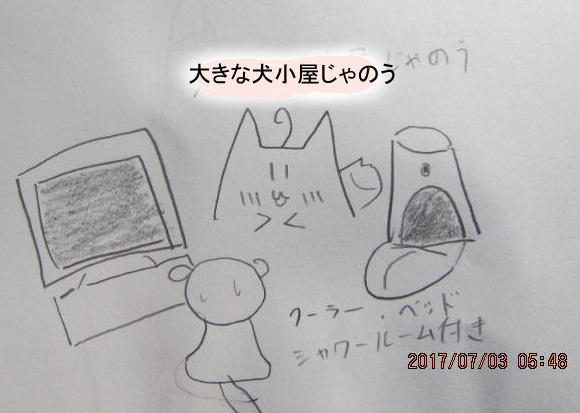 大きな犬小屋じゃのう
じゃのう
クーラー・ベッド
シャワールーム付き
2017/07/03 05:48